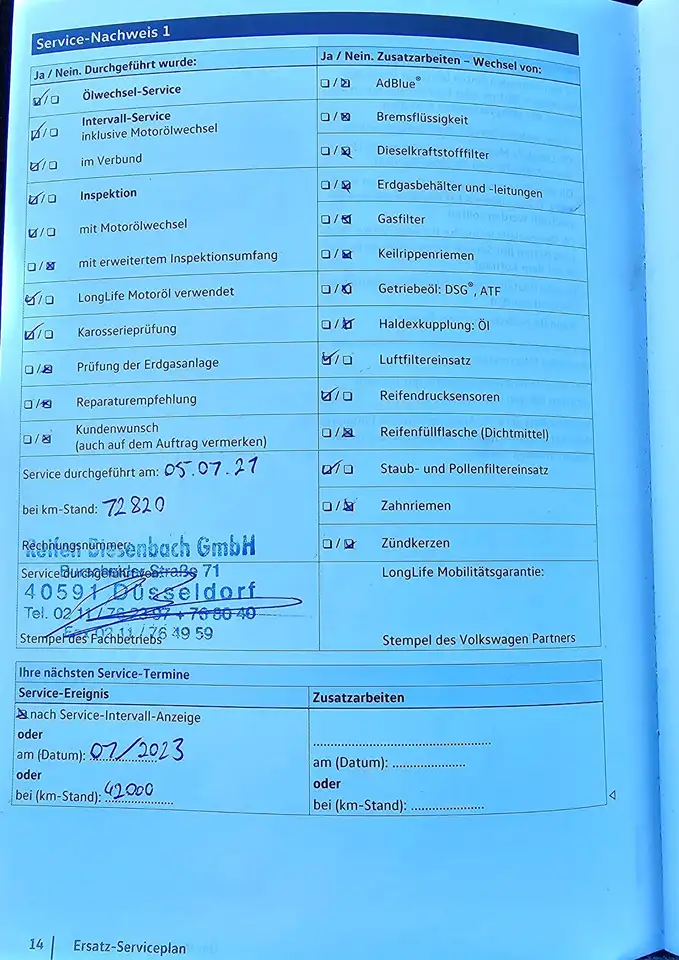 Service-Nachweis 1
Ja / Nein. Durchgeführt wurde:
Ölwechsel-Service
Intervall-Service
inklusive Motorölwechsel
im Verbund
Inspektion
mit Motorölwechsel
mit erweitertem Inspektionsumfang
LongLife Motoröl verwendet
Karosserieprüfung
Prüfung der Erdgasanlage
Reparaturempfehlung
Kundenwunsch
(auch auf dem Auftrag vermerken)
Service durchgeführt am: 05.07.21
bei km-Stand: 72820
Rechnungsnummer:
Reifen Biesenbach GmbH
Service durchgeführt
Straße 71
40591 Düsseldorf
Tel. 02 11 / 76
+ 76 80 40
Fax 02 11 / 76 49 59
Stempel des Fachbetriebs
Ja / Nein. Zusatzarbeiten – Wechsel von:
AdBlue®
Bremsflüssigkeit
Dieselkraftstofffilter
Erdgasbehälter und -leitungen
Gasfilter
Keilrippenriemen
Getriebeöl: DSG®, ATF
Haldexkupplung: Öl
Luftfiltereinsatz
Reifendrucksensoren
Reifenfüllflasche (Dichtmittel)
Staub- und Pollenfiltereinsatz
Zahnriemen
Zündkerzen
LongLife Mobilitätsgarantie:
Stempel des Volkswagen Partners
Ihre nächsten Service-Termine
Service-Ereignis
nach Service-Intervall-Anzeige
oder
am (Datum): 07/2023
oder
bei (km-Stand): 42000
Zusatzarbeiten
am (Datum):
oder
bei (km-Stand):
14 | Ersatz-Serviceplan